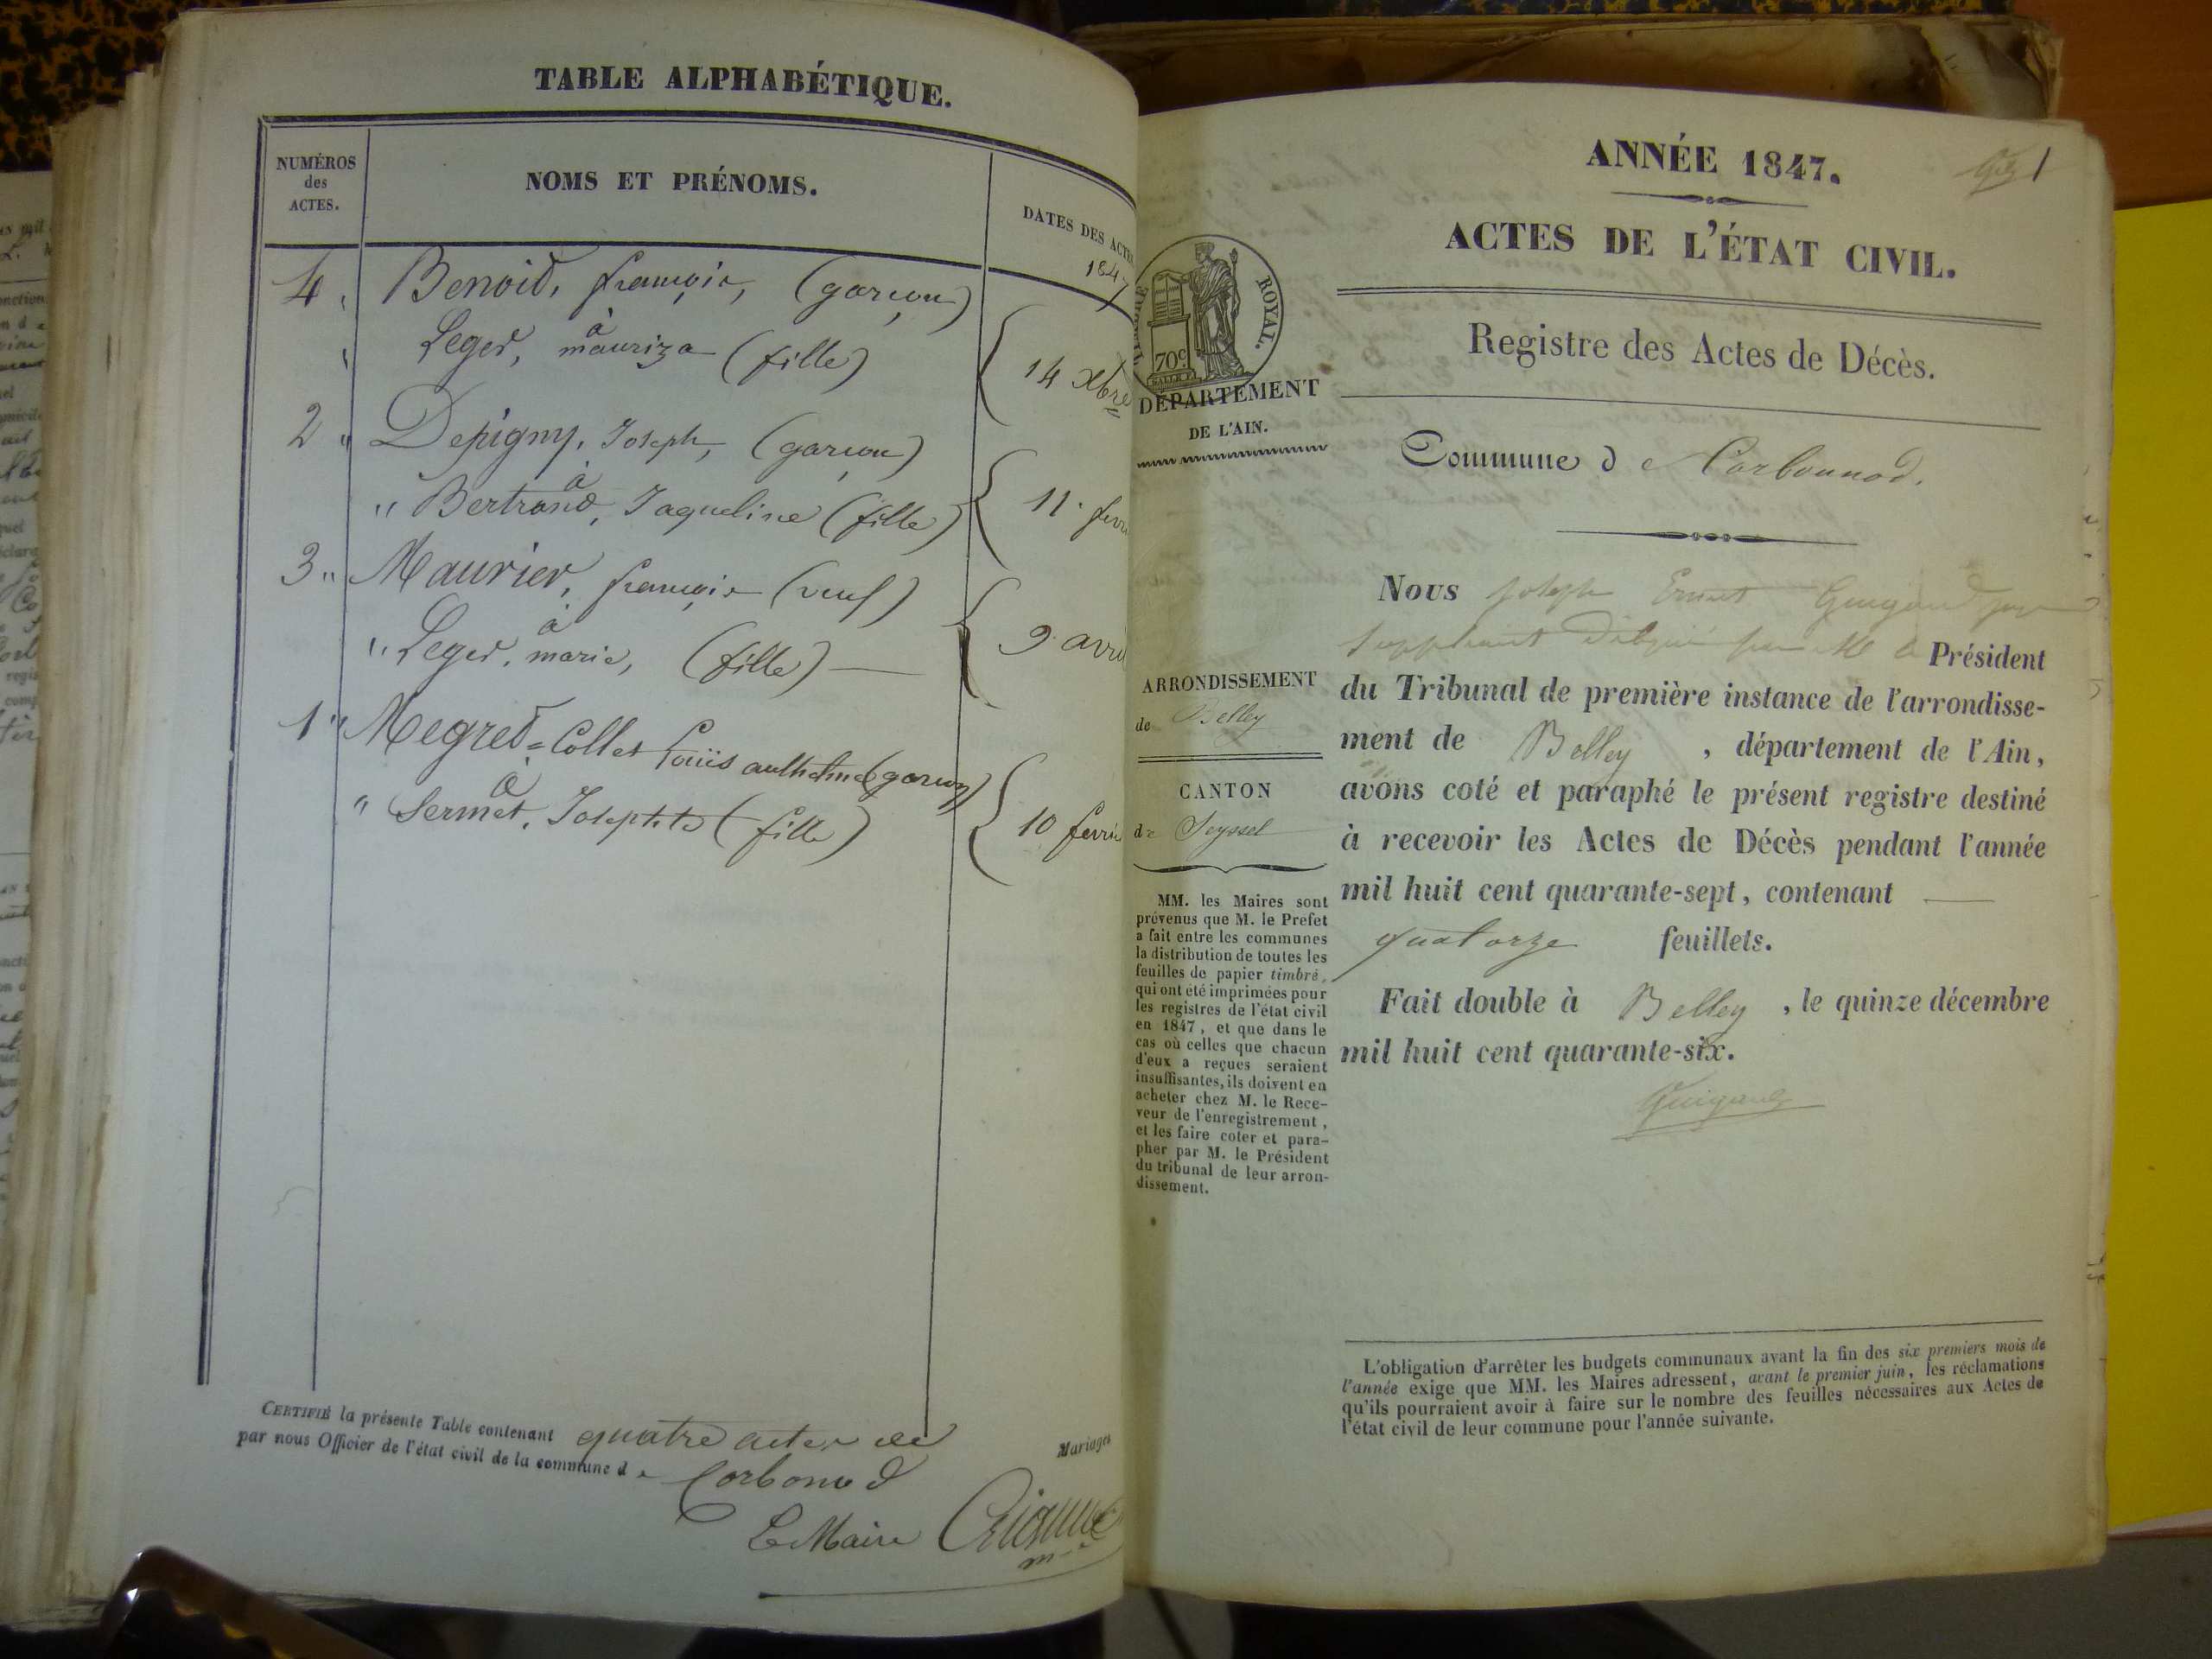 TABLE ALPHABÉTIQUE.
NUMÉROS
des
ACTES.
NOMS ET PRÉNOMS.
DATES DES ACTES
1847
4 Benoid, françois, (garçon)
à
Leger, mauriza (fille)
14 Xbre
2 " Depigny, Joseph, (garçon)
à
" Bertrand, Jaqueline (fille)
11 fevri
3 " Maurier, françois (veuf)
à
" Leger, marie, (fille)
9 avril
1 " Megred=Collet Louis anthelme (garçon)
à
" Sermet, Josephte (fille)
10 fevrie
CERTIFIÉ la présente Table contenant quatre actes de
Mariages
par nous Officier de l'état civil de la commune de Corbonod
Le Maire
1
ANNÉE 1847.
ACTES DE L'ÉTAT CIVIL.
Registre des Actes de Décès.
TIMBRE ROYAL.
70c
DÉPARTEMENT
DE L'AIN.
Commune de Corbonnod.
Nous Joseph Ernest Guigard juge
suppléant délégué par M le Président
du Tribunal de première instance de l'arrondisse-
ment de Belley, département de l'Ain,
avons coté et paraphé le présent registre destiné
à recevoir les Actes de Décès pendant l'année
mil huit cent quarante-sept, contenant
quatorze feuillets.
Fait double à Belley, le quinze décembre
mil huit cent quarante-six.
ARRONDISSEMENT
de Belley
CANTON
de Seyssel
MM. les Maires sont
prévenus que M. le Prefet
a fait entre les communes
la distribution de toutes les
feuilles de papier timbré,
qui ont été imprimées pour
les registres de l'état civil
en 1847, et que dans le
cas où celles que chacun
d'eux a reçues seraient
insuffisantes, ils doivent en
acheter chez M. le Rece-
veur de l'enregistrement,
et les faire coter et para-
pher par M. le Président
du tribunal de leur arron-
dissement.
L'obligation d'arrêter les budgets communaux avant la fin des six premiers mois de
l'année exige que MM. les Maires adressent, avant le premier juin, les réclamations
qu'ils pourraient avoir à faire sur le nombre des feuilles nécessaires aux Actes de
l'état civil de leur commune pour l'année suivante.